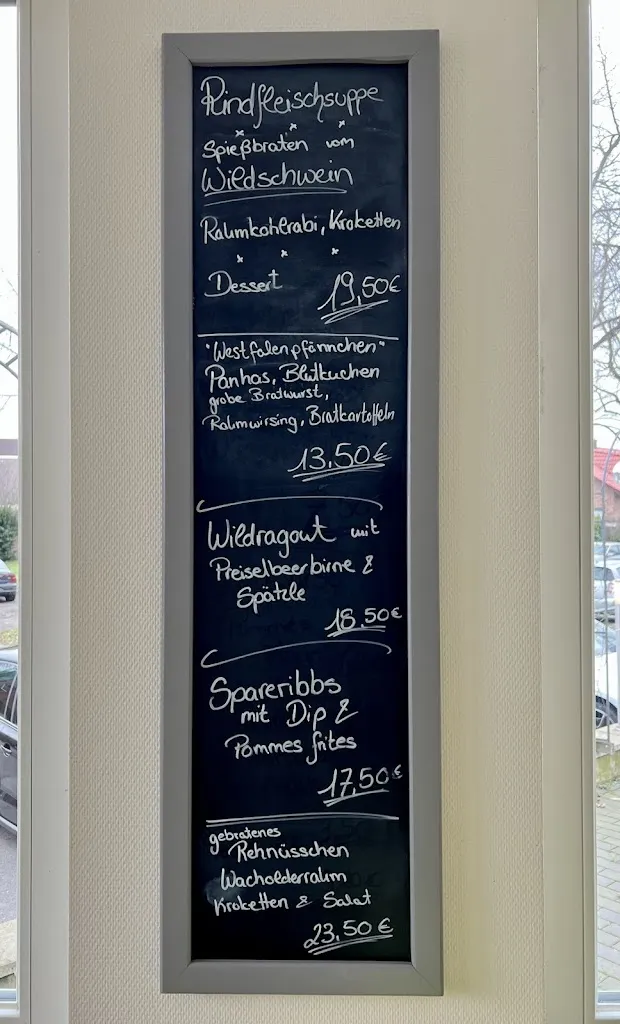 Rindfleischsuppe
Spießbraten vom
Wildschwein
Rahmkohlrabi, Kroketten
Dessert 19,50€
"Westfalenpfännchen"
Panhas, Blutkuchen
grobe Bratwurst,
Rahmwirsing, Bratkartoffeln
13,50€
Wildragout mit
Preiselbeerbirne &
Spätzle
18,50€
Spareribbs
mit Dip &
Pommes frites
17,50€
gebratenes
Rehnüsschen
Wacholderrahm
Kroketten & Salat
23,50€